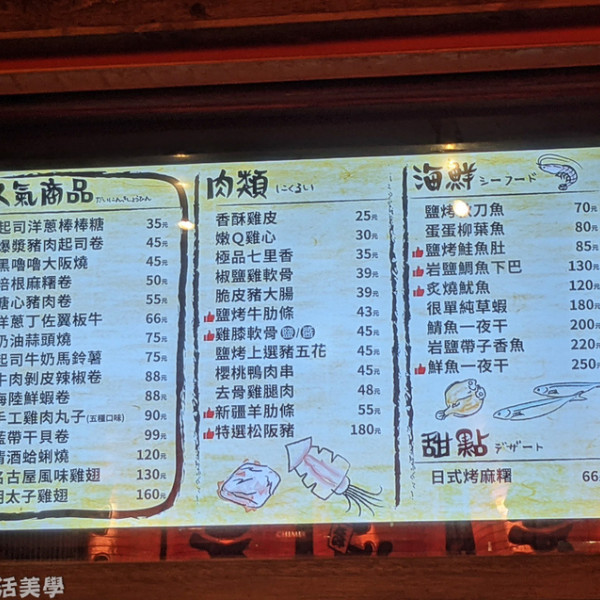 人氣商品
起司洋蔥棒棒糖 35元
爆漿豬肉起司卷 45元
黑嚕嚕大阪燒 45元
培根麻糬卷 50元
糖心豬肉卷 55元
洋蔥丁佐翼板牛 66元
奶油蒜頭燒 75元
起司牛奶馬鈴薯 75元
牛肉剝皮辣椒卷 88元
海陸鮮蝦卷 88元
手工雞肉丸子(五種口味) 90元
藍帶干貝卷 99元
清酒蛤蜊燒 120元
名古屋風味雞翅 130元
明太子雞翅 160元
肉類 にくるい
香酥雞皮 25元
嫩Q雞心 30元
極品七里香 35元
椒鹽雞軟骨 39元
脆皮豬大腸 39元
鹽烤牛肋條 43元
雞膝軟骨 鹽/醬 45元
鹽烤上選豬五花 45元
櫻桃鴨肉串 45元
去骨雞腿肉 48元
新疆羊肋條 55元
特選松阪豬 180元
海鮮 シーフード
鹽烤秋刀魚 70元
蛋蛋柳葉魚 80元
鹽烤鮭魚肚 85元
岩鹽鯛魚下巴 130元
炙燒魷魚 120元
很單純草蝦 180元
鯖魚一夜干 200元
岩鹽帶子香魚 220元
鮮魚一夜干 250元
甜點 デザート
日式烤麻糬 66
活美學